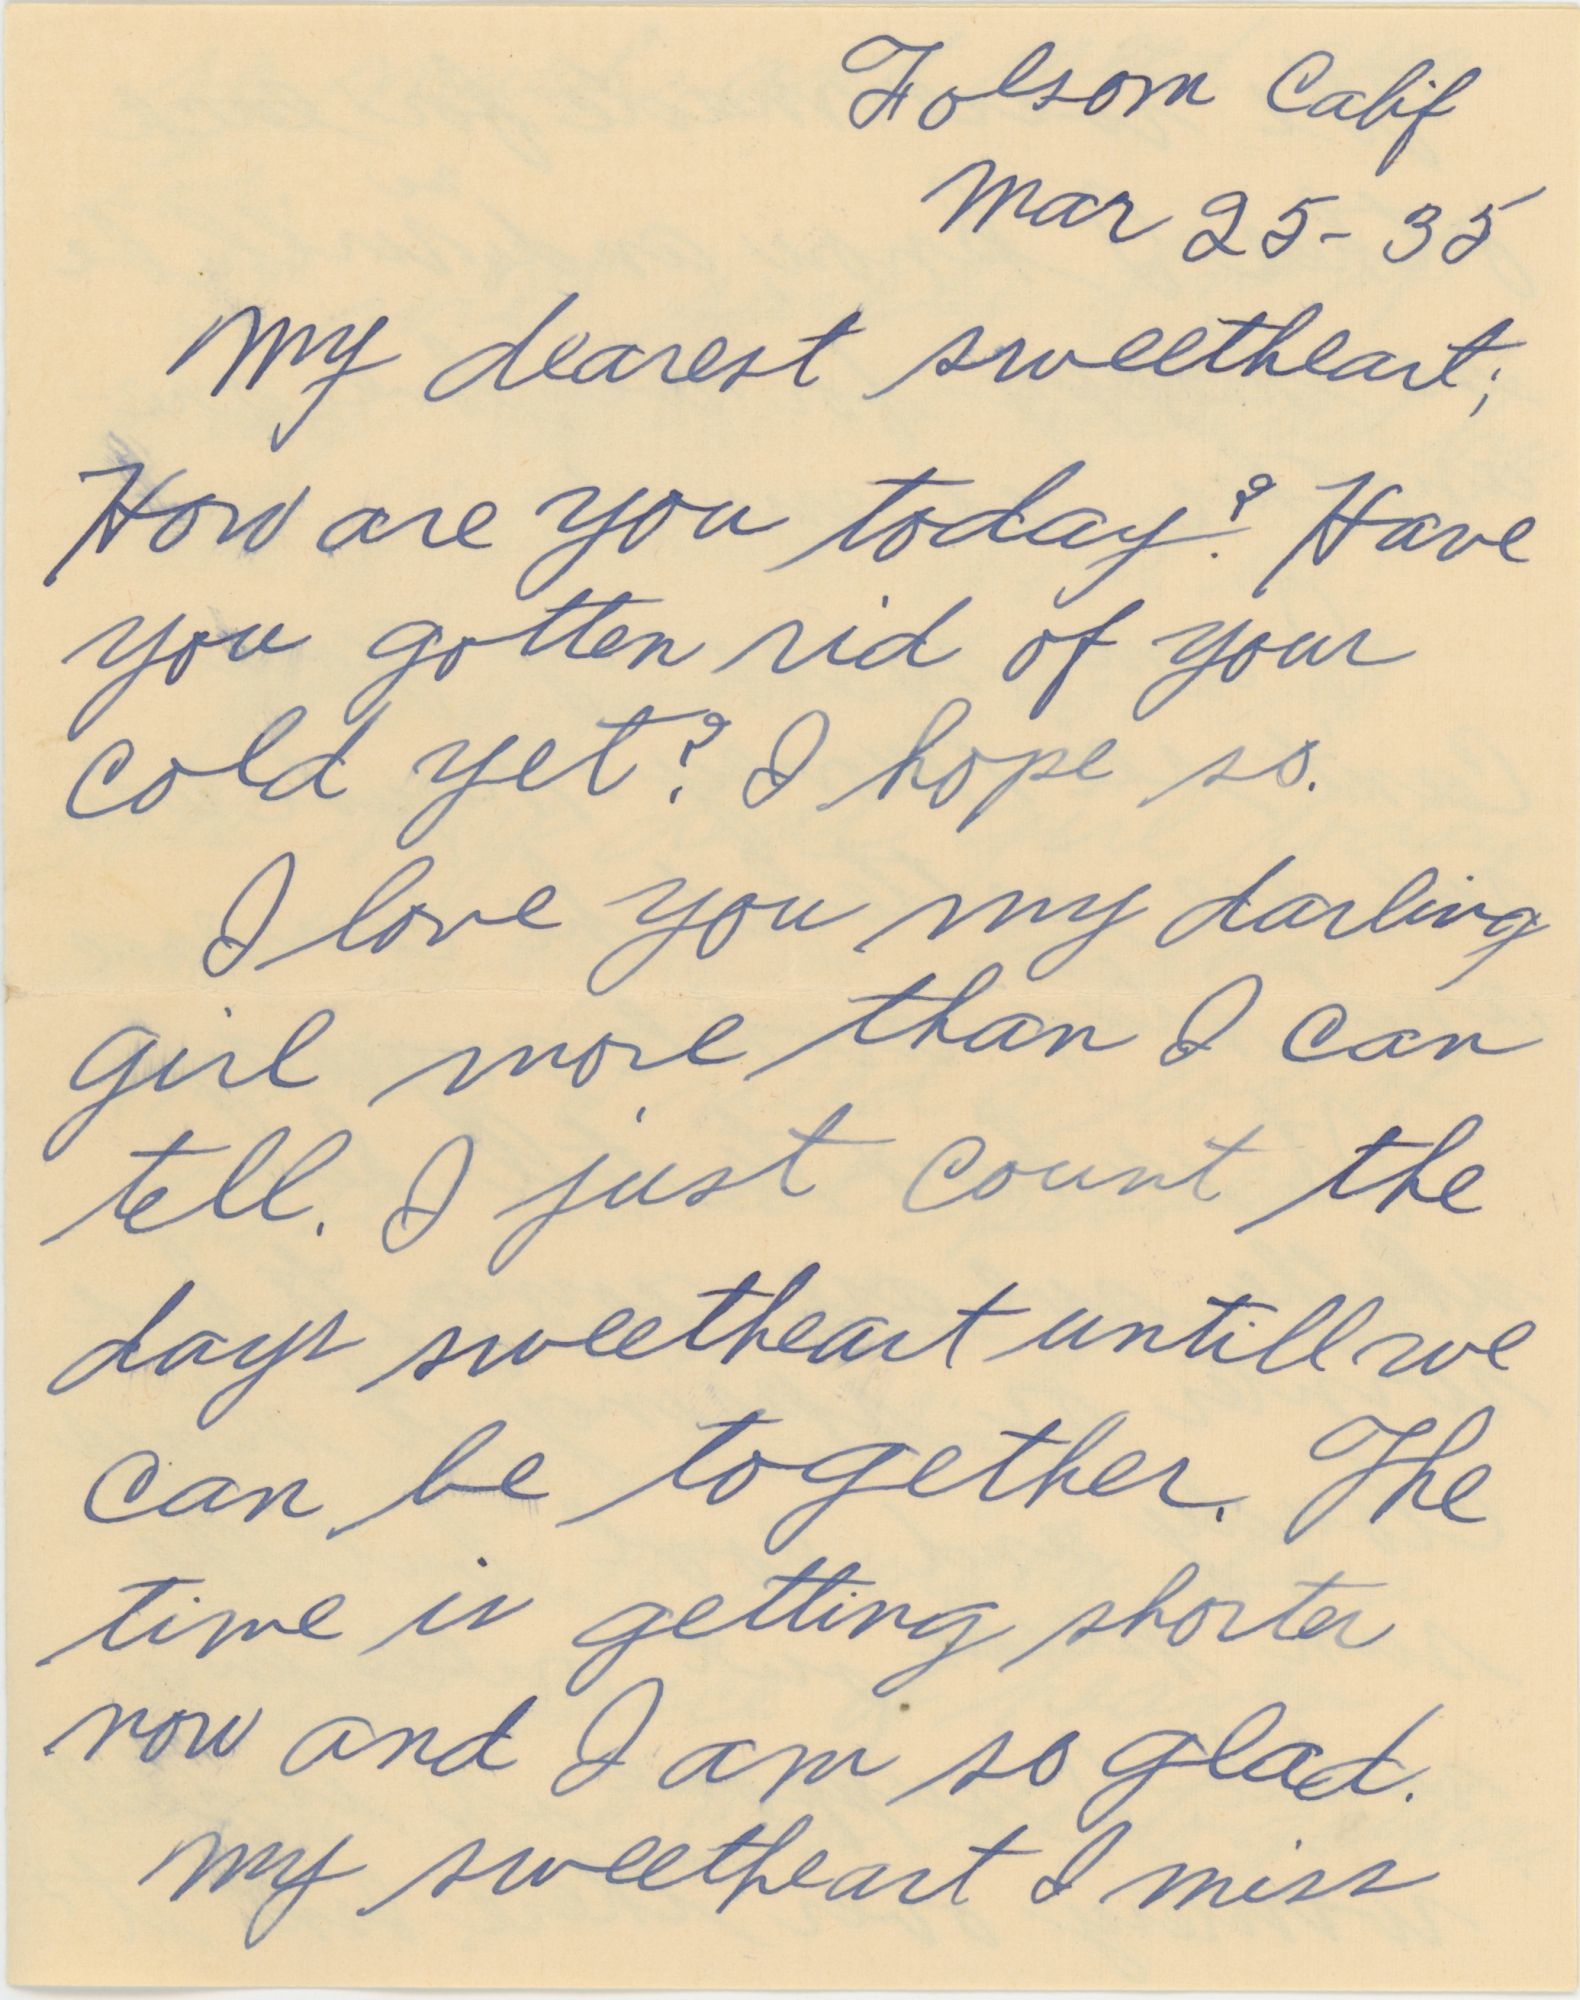 Folsom Calif
Mar 25-35
My dearest sweetheart;
How are you today? Have
you gotten rid of your
cold yet? I hope so.
I love you my darling
girl more than I can
tell. I just count the
days sweetheart untill we
can be together. The
time is getting shorter
now and I am so glad.
My sweetheart I miss